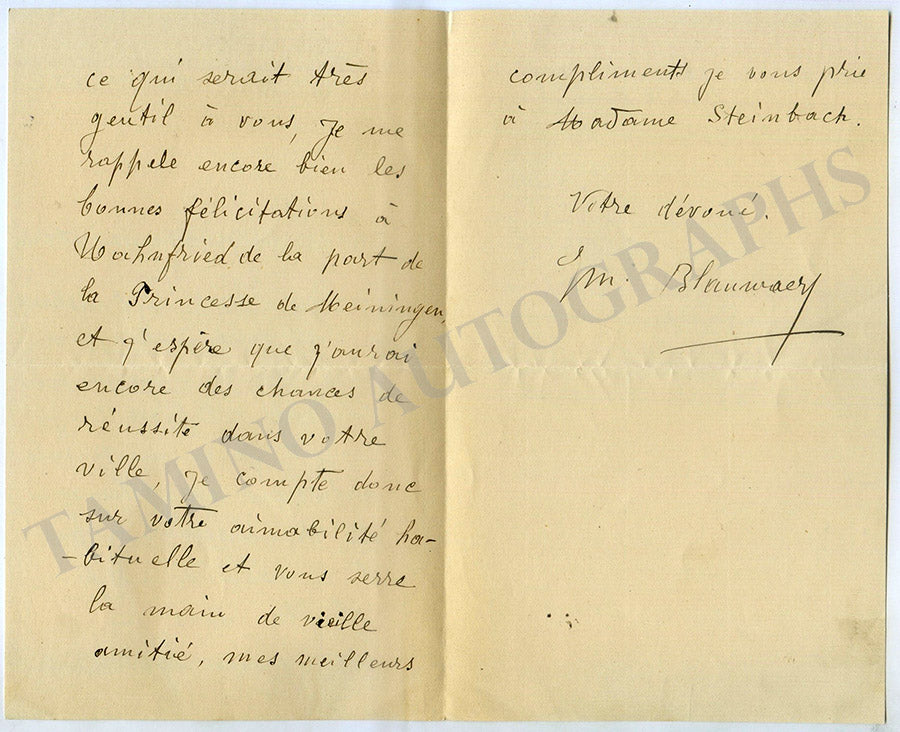 ce qui serait très
gentil à vous, je me
rappele encore bien les
bonnes félicitations à
Wahnfried de la part de
la Princesse de Meiningen,
et j'espère que j'aurai
encore des chances de
réussite dans votre
ville, je compte donc
sur votre aimabilité ha-
-bituelle et vous serre
la main de vieille
amitié, mes meilleurs
compliments je vous prie
à Madame Steinbach.
Votre dévoué.
Em. Blauwaert
TAMINO AUTOGRAPHS